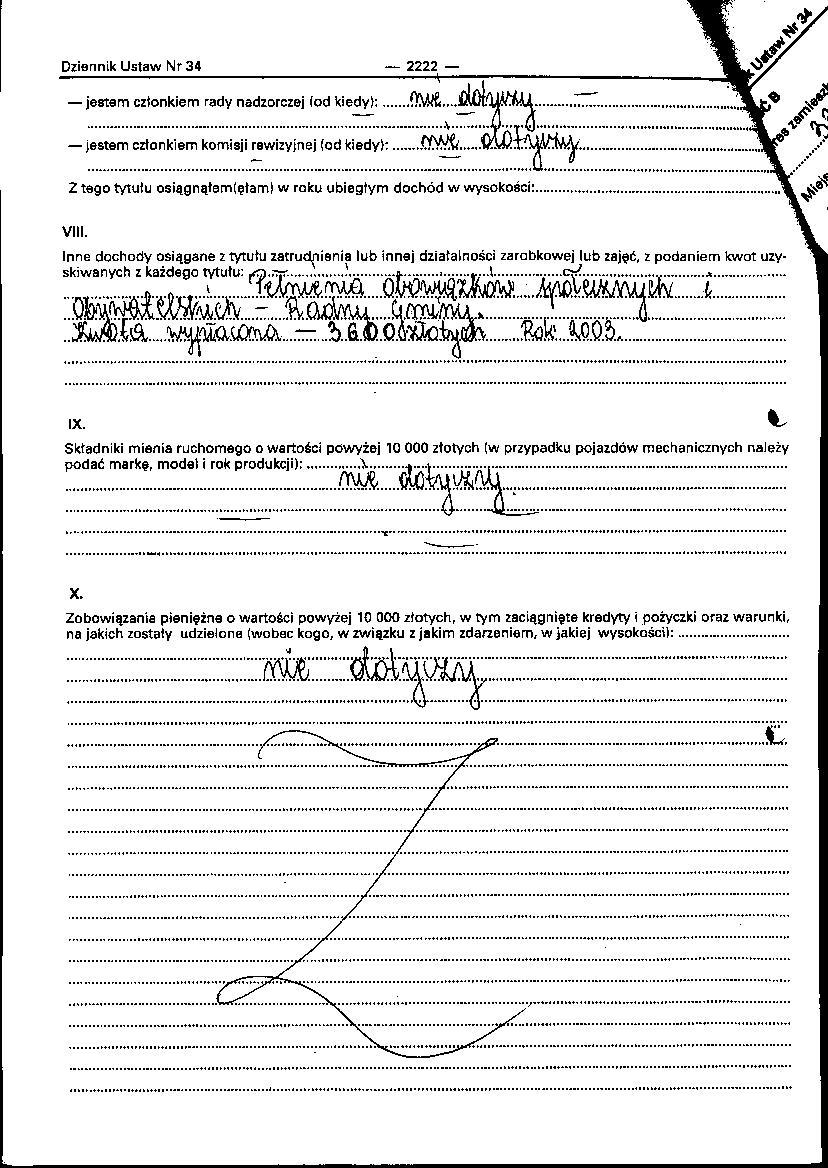 Dziennik Ustaw Nr 34 — 2222 —
k Ustaw Nr 34
— jestem członkiem rady nadzorczej (od kiedy): nie dotyczy —
— jestem członkiem komisji rewizyjnej (od kiedy): nie dotyczy
Z tego tytułu osiągnąłem(ęłam) w roku ubiegłym dochód w wysokości:
VIII.
Inne dochody osiągane z tytułu zatrudnienia lub innej działalności zarobkowej lub zajęć, z podaniem kwot uzy-
skiwanych z każdego tytułu: Pełnienia obowiązków społecznych i
Obywatelskich – Radny Gminy.
Kwota wypłacona – 3600 złotych Rok 2003.
IX.
Składniki mienia ruchomego o wartości powyżej 10 000 złotych (w przypadku pojazdów mechanicznych należy
podać markę, model i rok produkcji):
nie dotyczy.
X.
Zobowiązania pieniężne o wartości powyżej 10 000 złotych, w tym zaciągnięte kredyty i pożyczki oraz warunki,
na jakich zostały udzielone (wobec kogo, w związku z jakim zdarzeniem, w jakiej wysokości):
nie dotyczy